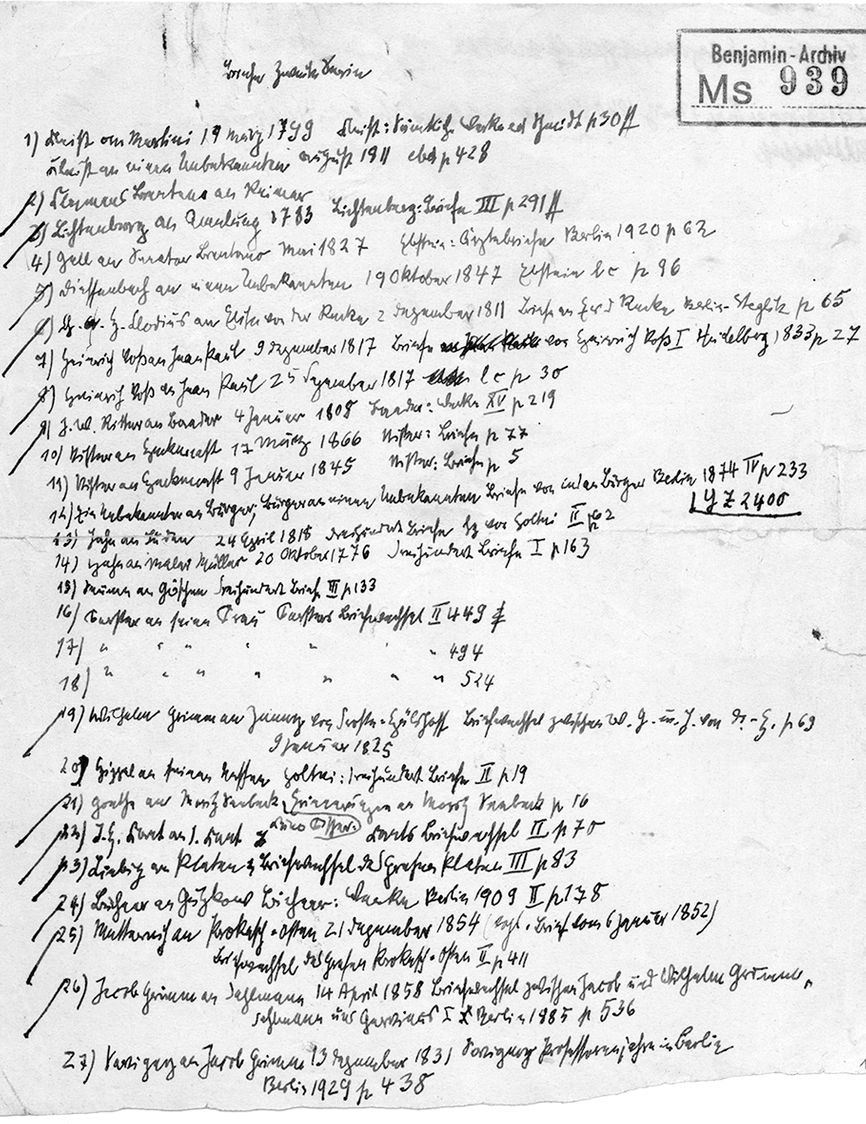 Benjamin-Archiv
Ms 939
Briefe Zweite Serie
1) Kleist an Martini 19 März 1799 Kleist: Sämtliche Werke ed Schmidt p 30 ff
Kleist an einen Unbekannten August 1811 ebd p 428
2) Clemens Brentano an Reimer
3) Lichtenberg an Amelung 1783 Lichtenberg: Briefe III p 291 ff
4) Gall an Senator Brentano Mai 1827 Ebstein: Ärztebriefe Berlin 1920 p 62
5) Dieffenbach an einen Unbekannten 19 Oktober 1847 Ebstein l c p 96
6) Ch. A. H. Clodius an Elisa von der Recke 2 Dezember 1811 Briefe an E v d Recke Berlin-Steglitz p 65
7) Heinrich Voß an Jean Paul 9 Dezember 1817 Briefe von Heinrich Voß I Heidelberg 1833 p 27
8) Heinrich Voß an Jean Paul 25 Dezember 1817 l c p 30
9) J. W. Ritter an Baader 4 Januar 1808 Baader: Werke XV p 219
10) an 17 März 1866 Briefe p 77
11) an 9 Januar 1845 Briefe p 5
12) Ein Unbekannter an Bürger, Bürger an einen Unbekannten Briefe von und an Bürger Berlin 1874 IV p 233
| YZ 2400
13) Jahn an 24 April 1818 Dreihundert Briefe hg von Holtei II p 62
14) an Maler Müller 20 Oktober 1776 Dreihundert Briefe I p 163
15) Seume an Göschen Dreihundert Briefe III p 133
16) Forster an seine Frau Forsters Briefwechsel II 449
17) " " " " " " 494
18) " " " " " " 524
19) Wilhelm Grimm an Jenny von Droste-Hülshoff Briefwechsel zwischen W. G. u. J. von D.-H. p 69
9 Januar 1825
20) Hippel an seinen Neffen Holtei: Dreihundert Briefe II p 19
21) Goethe an Moritz Seebeck Erinnerungen an Moritz Seebeck p 16
22) J. H. Kant an I. Kant Kuno Fischer Kants Briefwechsel II p 70
23) Liebig an Platen Briefwechsel des Grafen Platen III p 83
24) Büchner an Gutzkow Büchner: Werke Berlin 1909 II p 178
25) Metternich an Prokesch-Osten 21 Dezember 1854 (vgl. Brief vom 6 Januar 1852)
Briefwechsel des Grafen Prokesch-Osten II p 411
26) Jacob Grimm an Dahlmann 14 April 1858 Briefwechsel zwischen Jacob und Wilhelm Grimm,
Dahlmann und Gervinus I Berlin 1885 p 536
27) Savigny an Jacob Grimm 13 Dezember 1831 Savignys Professorenjahre in Berlin
Berlin 1929 p 438